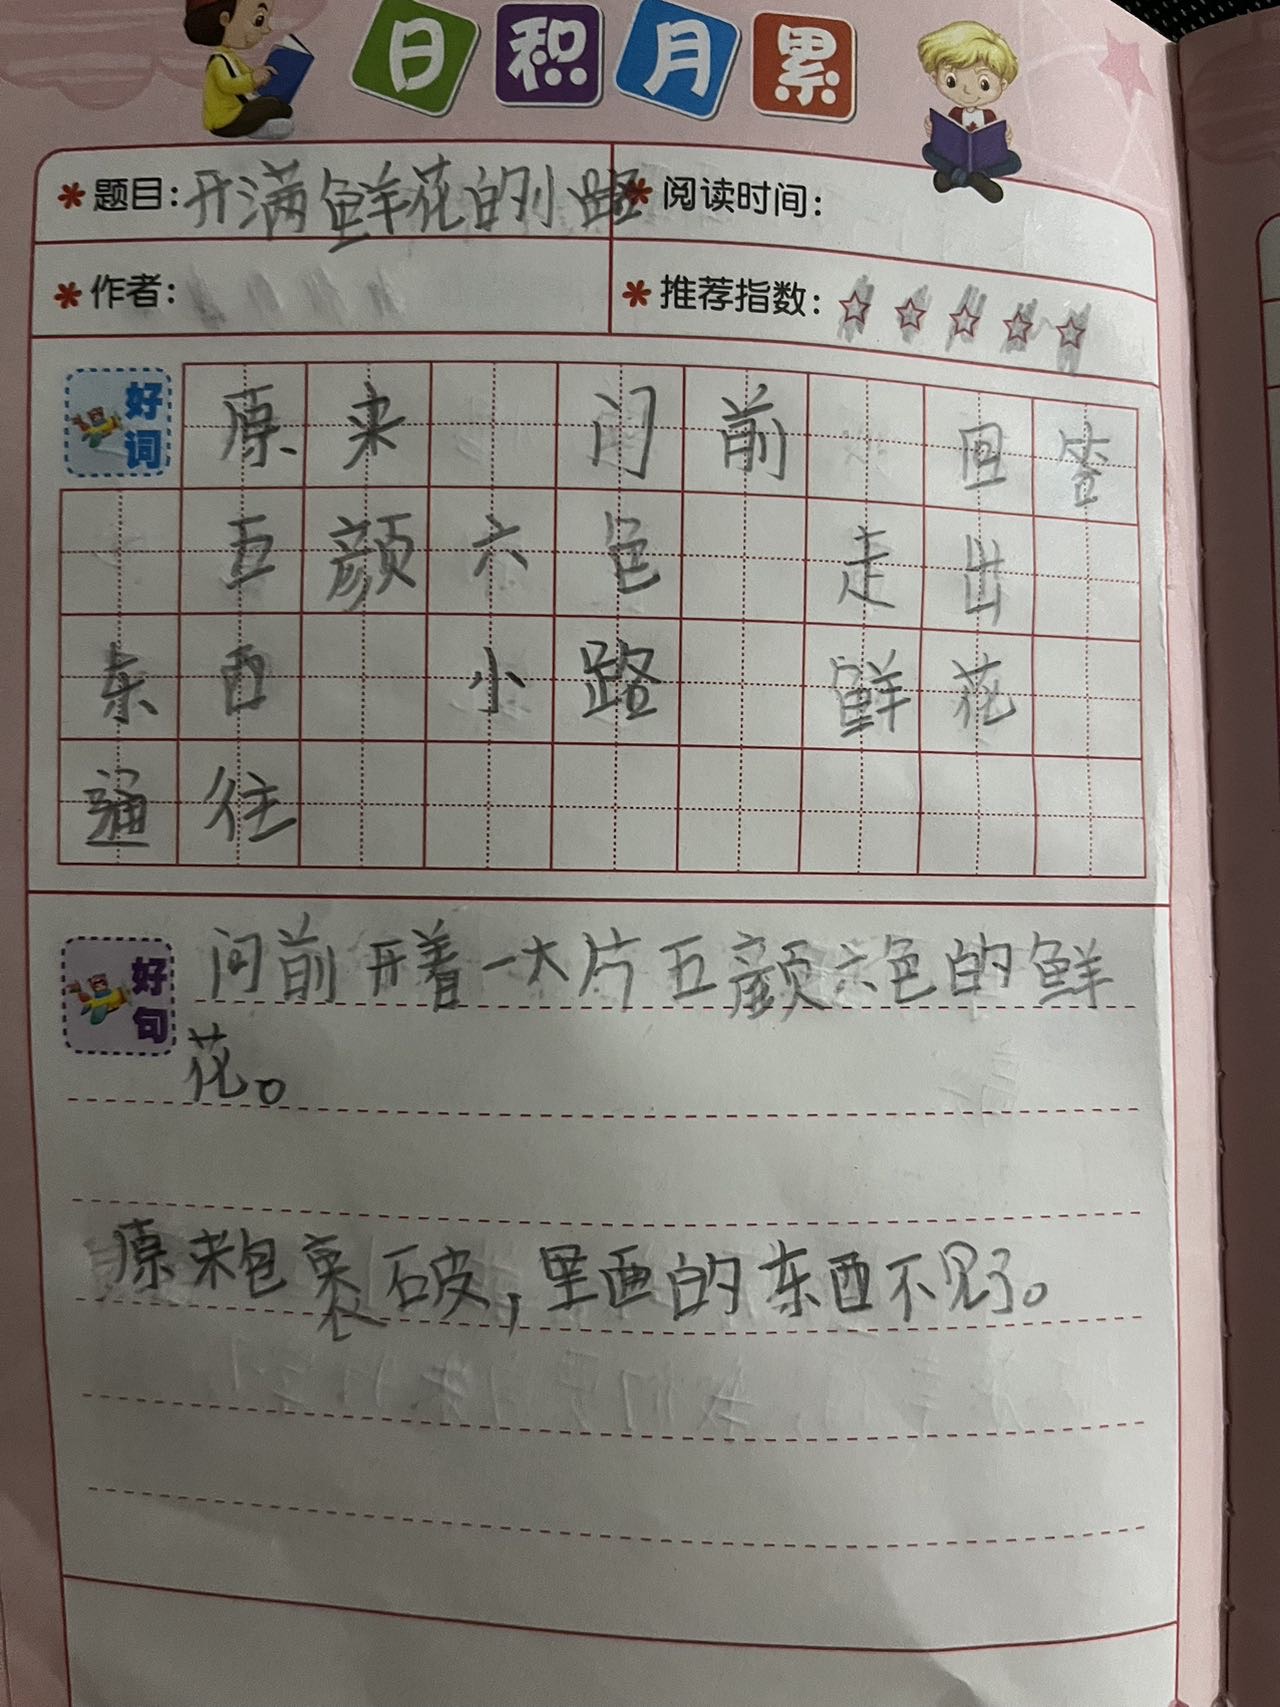 日积月累
题目：开满鲜花的小路
阅读时间：
作者：
推荐指数：☆☆☆☆☆
好词
原来 门前 回答
五颜六色 走出
东西 小路 鲜花
通往
好句
门前开着一大片五颜六色的鲜
花。
原来包裹破，里面的东西不见了。